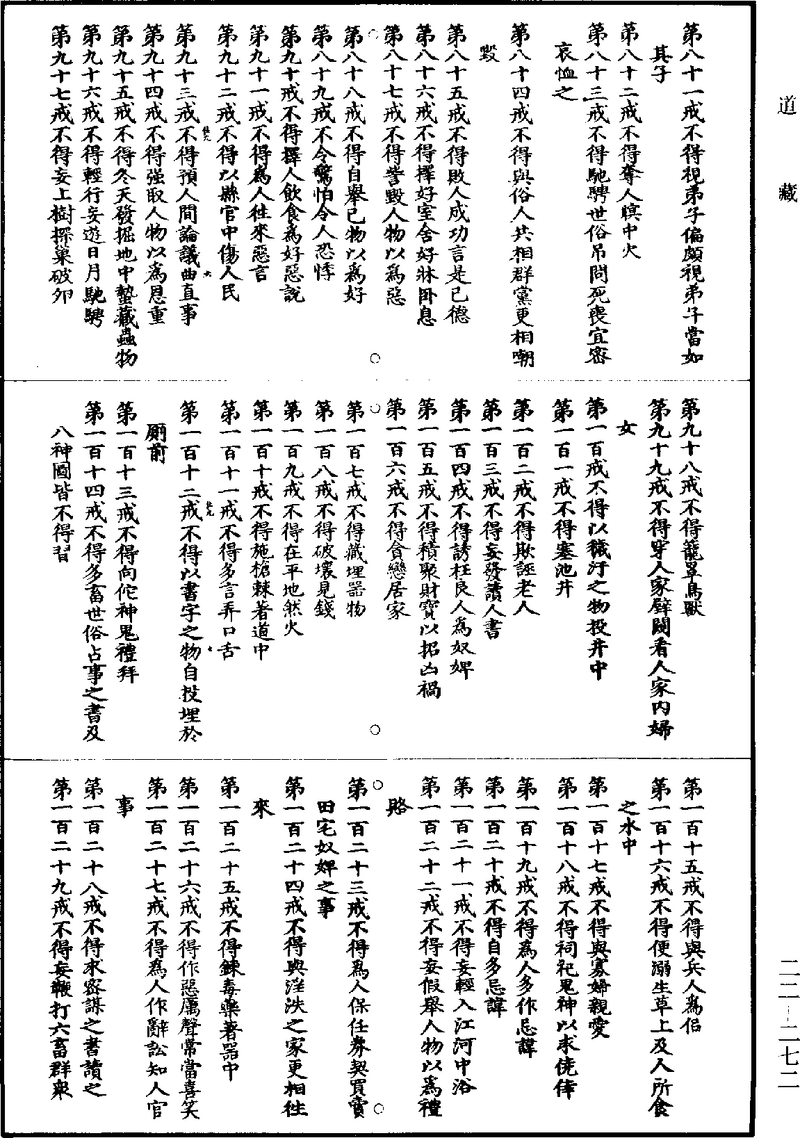 道藏
第八十一戒不得視弟子偏頗視弟子當如
其子
第八十二戒不得奪人暝中火
第八十三戒不得馳騁世俗吊問死喪宜密
哀恤之
第八十四戒不得與俗人共相群黨更相嘲
毀
第八十五戒不得敗人成功言是己德
第八十六戒不得擇好室舍好牀臥息
第八十七戒不得訾毀人物以為惡
第八十八戒不得自舉己物以為好
第八十九戒不令驚怕令人恐悸
第九十戒不得擇人飲食為好惡說
第九十一戒不得為人往來惡言
第九十二戒不得以縣官中傷人民
第九十三戒不得預人間論議曲直事
第九十四戒不得强取人物以為恩重
第九十五戒不得冬天發掘地中蟄藏蟲物
第九十六戒不得輕行妄遊日月馳騁
第九十七戒不得妄上樹探巢破卵
第九十八戒不得籠罩鳥獸
第九十九戒不得穿人家壁闚看人家內婦
女
第一百戒不得以穢汙之物投井中
第一百一戒不得塞池井
第一百二戒不得欺誣老人
第一百三戒不得妄發讀人書
第一百四戒不得誘枉良人為奴婢
第一百五戒不得積聚財寶以招凶禍
第一百六戒不得貪戀居家
第一百七戒不得藏埋器物
第一百八戒不得破壞見錢
第一百九戒不得在平地然火
第一百十戒不得施槍棘著道中
第一百十一戒不得多言弄口舌
第一百十二戒不得以書字之物自投埋於
廁前
第一百十三戒不得向佗神鬼禮拜
第一百十四戒不得多畜世俗占事之書及
八神圖皆不得習
第一百十五戒不得與兵人為侶
第一百十六戒不得便溺生草上及人所食
之水中
第一百十七戒不得與寡婦親愛
第一百十八戒不得祠祀鬼神以求僥倖
第一百十九戒不得為人多作忌諱
第一百二十戒不得自多忌諱
第一百二十一戒不得妄輕入江河中浴
第一百二十二戒不得妄假舉人物以為禮
賂
第一百二十三戒不得為人保任券契買賣
田宅奴婢之事
第一百二十四戒不得與淫泆之家更相往
來
第一百二十五戒不得鍊毒藥著器中
第一百二十六戒不得作惡厲聲常當喜笑
第一百二十七戒不得為人作辭訟知人官
事
第一百二十八戒不得求密謀之書讀之
第一百二十九戒不得妄鞭打六畜群眾
二二－二七二